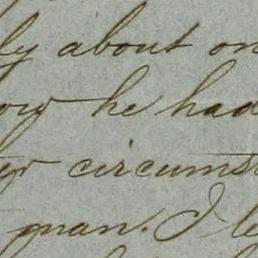 ly about on
he had
circums
man. I le